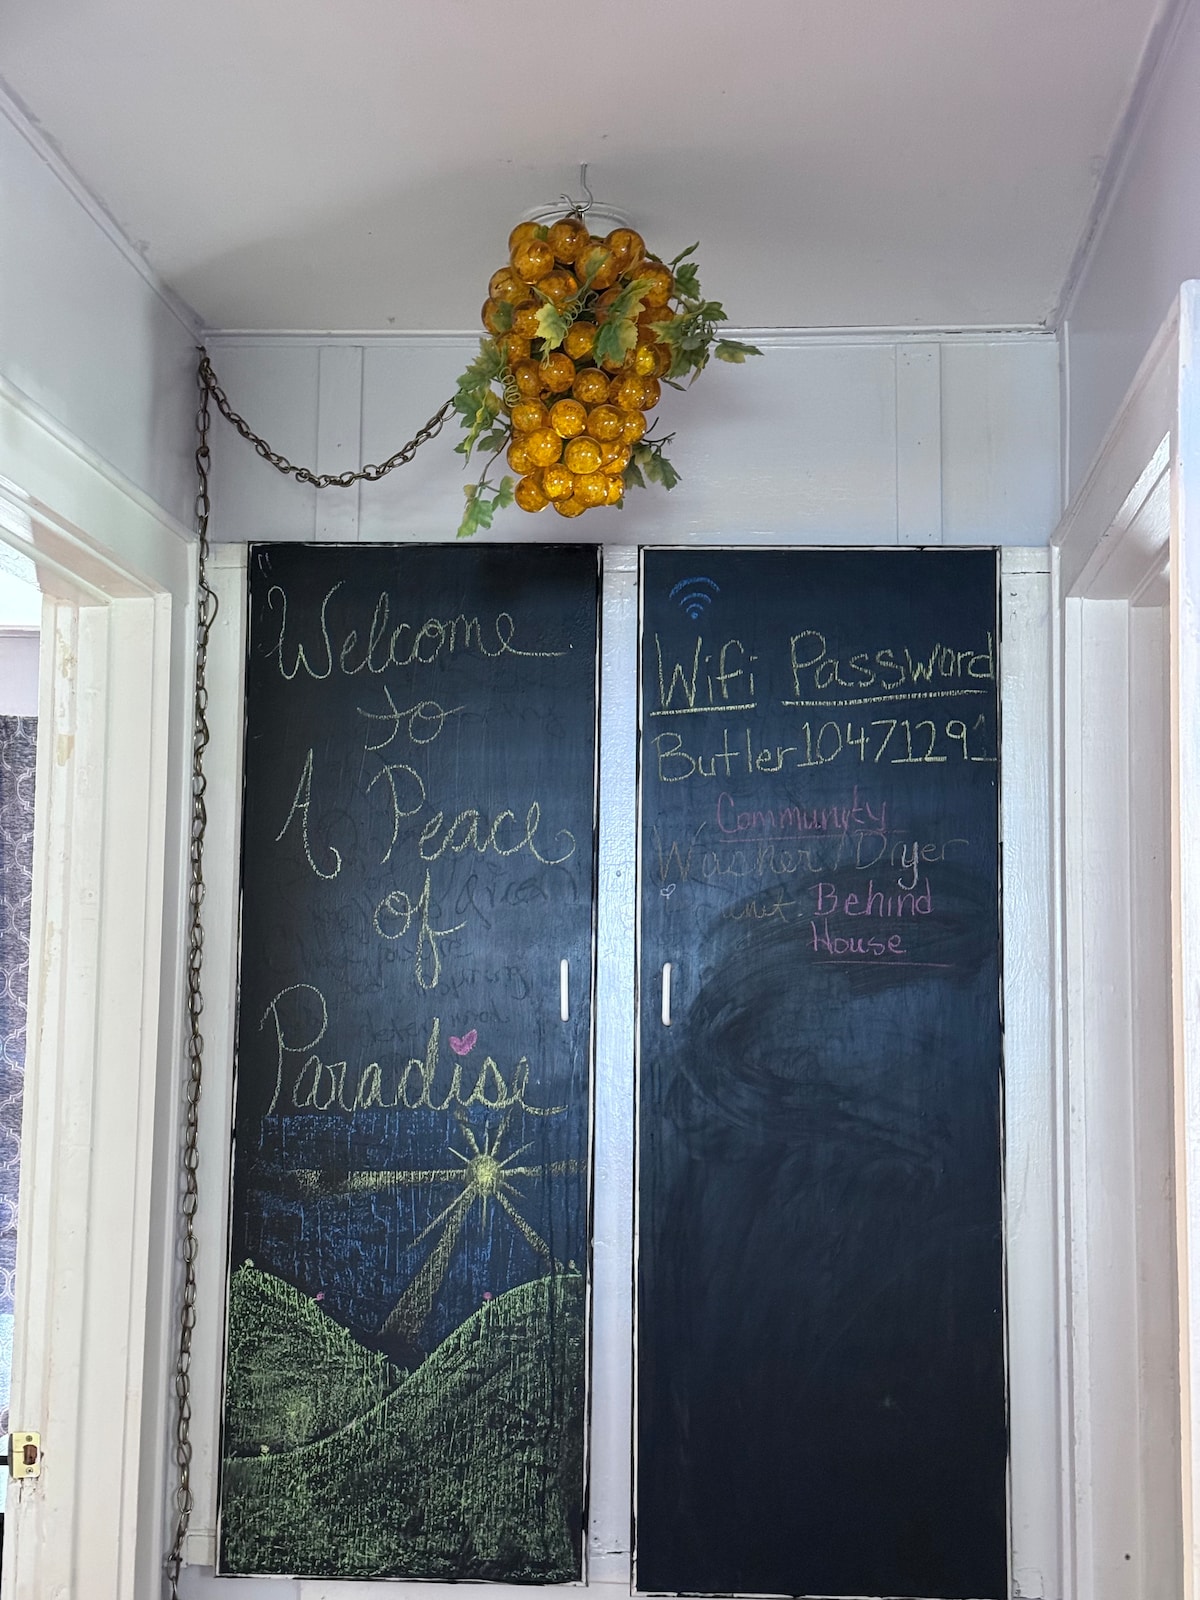 Welcome
to
A Peace
of
Paradise
Wifi Password
Butler10471291
Community
Washer/Dryer
unit. Behind
House